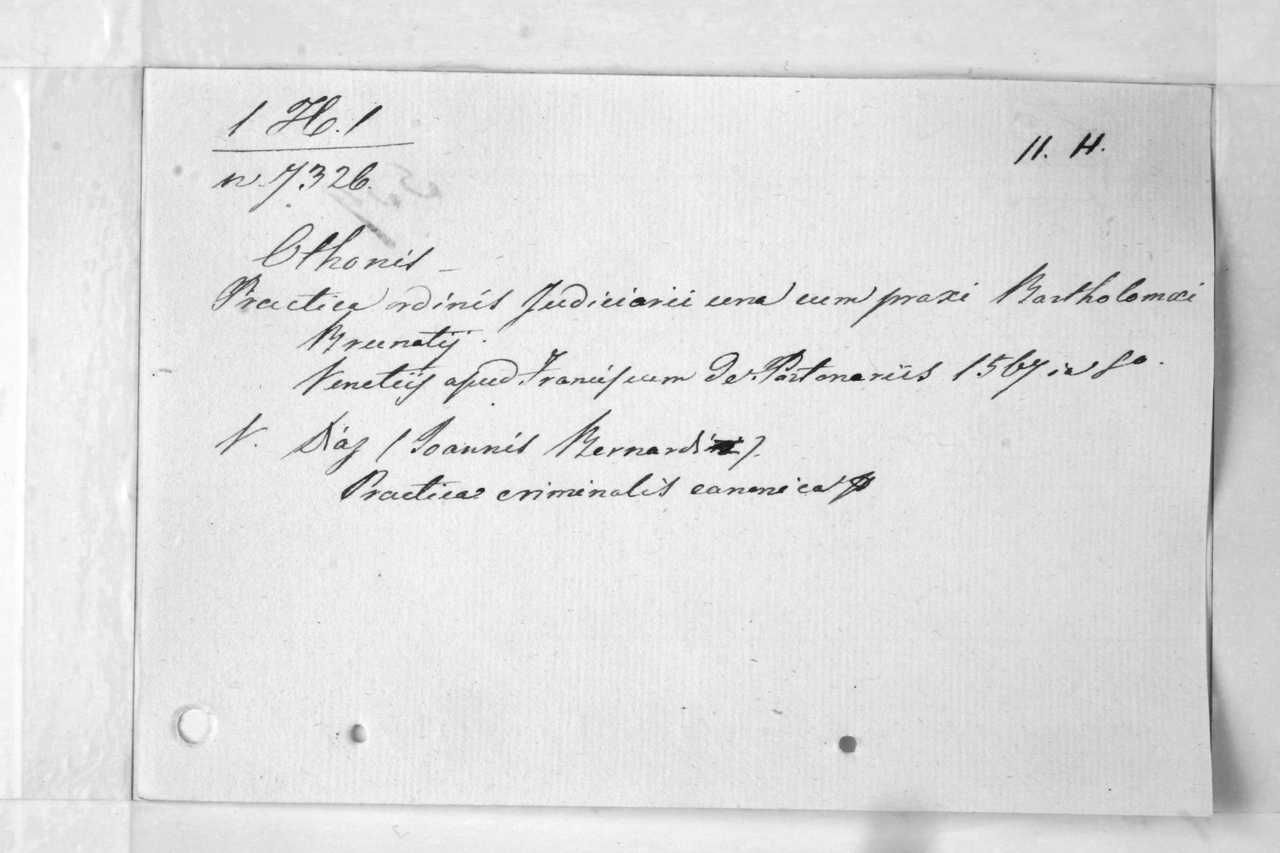 1 H. 1
11. H.
n. 7326.
Othonis
Practica ordinis Judiciarii una cum praxi Bartholomæi
Brunatij.
Venetiis apud Franciscum de Portonariis 1567 in 8o.
V. Diaz (Joannis Bernardi).
Practica criminalis canonica